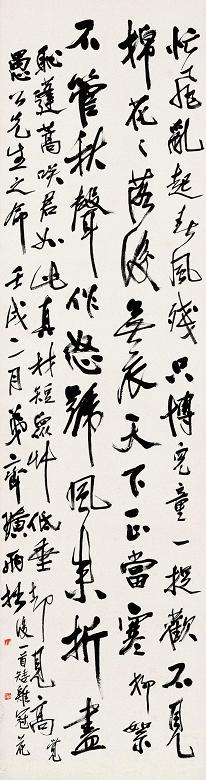 忙飛亂起春風殘只博兒童一捉歡不見
棉花〻落後無衣天下正當寒柳絮
不管秋聲作怒號風來折盡
恥蓬蒿咲君如此真材短眾艸低垂却見高
愚公先生之命壬戌二月弟齊璜
後一首題雞冠花